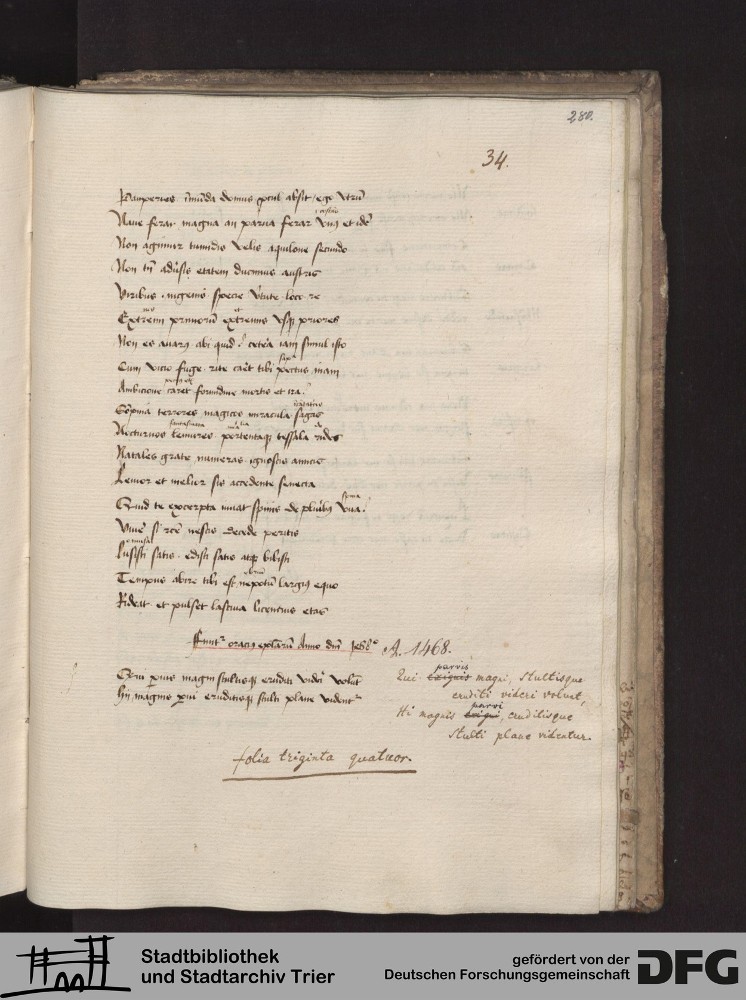 280.
34.
Pauperies īmūda domus procul absit ego utrū
Naue ferar magna an parua ferar unus et idē
Non agimur tumidis velis aquilone secundo
Non tn̄ aduersis etatem ducimus austris
Viribus ingenio specie virtute loco re
Extremi primorū extremis usqȝ priores
Non es auarus abi quid cetera iam simul isto
Cum vicio fuge rite caret tibi pectus inani
Ambicione caret formidine mortis et ira
Sompnia terrores magicos miracula sagas
Nocturnos lemures portentaqȝ tessala rides
Natales grate numeras ignoscis amicis
Lenior et melior fis accedente senecta
Quid te exempta iuuat spinis de pluribus una
Viuere si recte nescis decede peritis
Lusisti satis edisti satis atqȝ bibisti
Tempus abire tibi est ne potū largius equo
Rideat et pulset lasciua licencius etas
Finit oracius eplārū Anno dm̄ 1468
A. 1468.
Qui paruis magni stultisqȝ eruditi videri volūt
Hii magnis parui eruditisqȝ stulti plane videntur
parvis
Qui exiguis magni, stultisque
eruditi videri volunt,
parvi
Hi magnis exigui, eruditisque
Stulti plane videntur.
folia triginta quatuor.
Stadtbibliothek
und Stadtarchiv Trier
gefördert von der
Deutschen Forschungsgemeinschaft
DFG